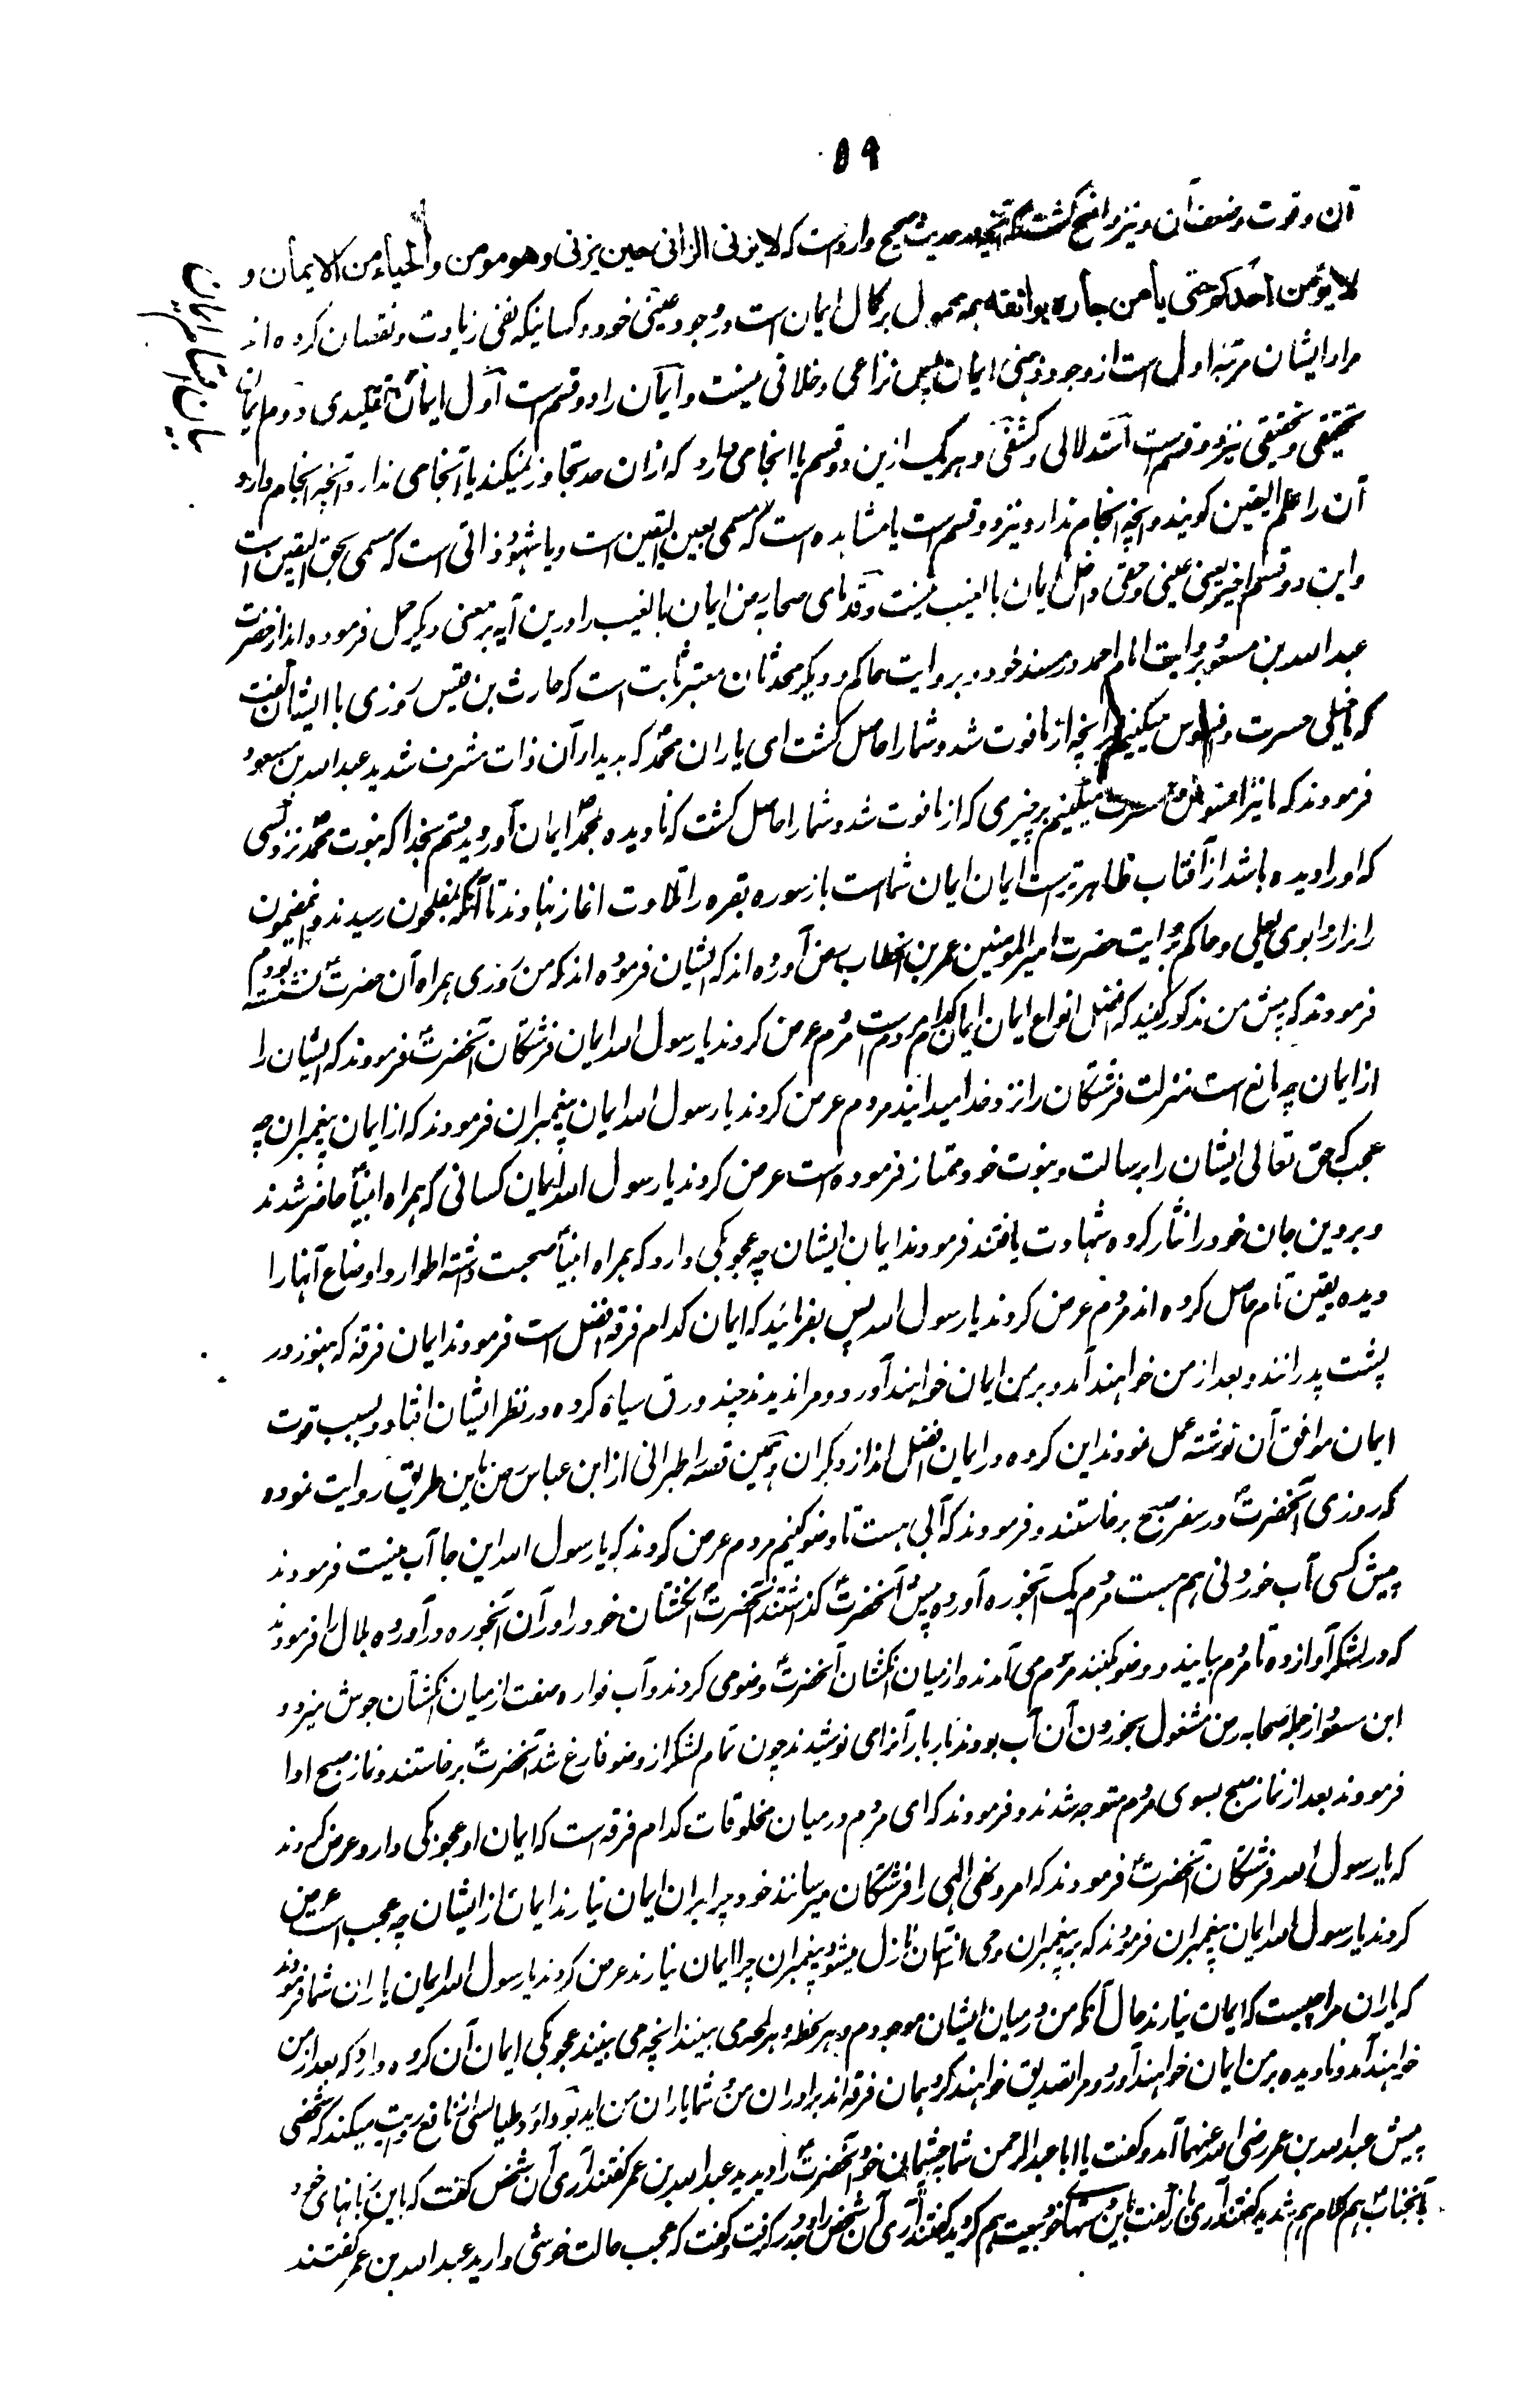 ۵۹
آن و قوت و ضعف آن و نیز واضح گشت که آنچه در حدیث صحیح وارد است که لا یزنی الزانی حین یزنی و هو مومن و الحیاء من الایمان و
لا یؤمن احدکم حتی یأمن جاره بوائقه همه محمول بر کمال ایمان است در وجود عینی خود و کسانیکه نفی زیادت و نقصان کرده اند
مراد ایشان مرتبه اول است از وجود ذهنی ایمان پس نزاعی و خلافی نیست و ایمان را دو قسم است اول ایمان تقلیدی دوم ایمان
تحقیقی و تحقیقی نیز دو قسم است استدلالی و کشفی و هر یک ازین دو قسم یا انجامی دارد که ازان حد تجاوز نمیکند یا انجامی ندارد آنچه انجام دارد
آن را علم الیقین گویند و آنچه انجام ندارد نیز دو قسم است یا مشاهده است که مسمی بعین الیقین است و یا شهود ذاتی است که مسمی بحق الیقین است
و این دو قسم اخیر یعنی عینی و حقی داخل ایمان بالغیب نیست و قدمای صحابه رض ایمان بالغیب را درین آیه بر معنی دیگر حمل فرموده اند از حضرت
عبد الله بن مسعود بروایت امام احمد در مسند خود و بروایت حاکم و دیگر محدثان معتبر ثابت است که حارث بن قیس روزی با ایشان گفت
که ما خیلی حسرت و افسوس میکنیم بر آنچه از ما فوت شد و شما را حاصل گشت ای یاران محمد که بدیدار آن ذات مشرف شدید عبد الله بن مسعود
فرمودند که ما نیز افسوس و حسرت میکنیم بر چیزی که از ما فوت شد و شما را حاصل گشت که نادیده بمحمد ایمان آوردید قسم بخدا که نبوت محمد نزد کسی
که او را دیده باشد از آفتاب ظاهر تر است ایمان ایمان شماست باز سوره بقره را تلاوت اغاز نهادند تا آنکه بمفلحون رسیدند و همین مضمون
را بزار و ابو یعلی و حاکم بروایت حضرت امیر المومنین عمر بن الخطاب رض آورده اند که ایشان فرموده اند که من روزی همراه آن حضرت نشسته بودم
فرمودند که پیش من مذکور کنید که افضل انواع ایمان ایمان کدام مردم است مردم عرض کردند یا رسول الله ایمان فرشتگان آنحضرت فرمودند که ایشان را
از ایمان چه مانع است منزلت فرشتگان را نزد خدا میدانید مردم عرض کردند یا رسول الله ایمان پیغمبران فرمودند که از ایمان پیغمبران چه
عجب که حق تعالی ایشان را برسالت و نبوت خود ممتاز فرموده است عرض کردند یا رسول الله ایمان کسانی که همراه انبیا حاضر شدند
و بر دین جان خود را نثار کرده شهادت یافتند فرمودند ایمان ایشان چه عجوبگی دارد که همراه انبیا صحبت داشته اطوار و اوضاع آنها را
دیده یقین تام حاصل کرده اند مردم عرض کردند یا رسول الله پس بفرمائید که ایمان کدام فرقه افضل است فرمودند ایمان فرقه که هنوز در
پشت پدرانند و بعد از من خواهند آمد و بر من ایمان خواهند آورد و مرا ندیدند چند ورق سیاه کرده در نظر ایشان افتاد و بسبب قوت
ایمان موافق آن نوشته عمل نمودند این گروه در ایمان افضل اند از دیگران و همین قصه را طبرانی از ابن عباس رض باین طریق روایت نموده
که روزی آنحضرت در سفر صبح برخاستند و فرمودند که آبی هست تا وضو کنیم مردم عرض کردند که یا رسول الله این جا آب نیست فرمودند
پیش کسی آب خوردنی هم هست مردم یک آبخوره آورده پیش آنحضرت گذاشتند آنحضرت انگشتان خود را در آن آبخوره در آورده بلال را فرمودند
که در لشکر آواز ده تا مردم بیایند و وضو کنند مردم می آمدند و از میان انگشتان آنحضرت وضو می کردند و آب فواره صفت از میان انگشتان جوش میزد و
ابن مسعود از جمله صحابه رض مشغول بخوردن آن آب بودند بار بار آنرا می نوشیدند چون تمام لشکر از وضو فارغ شد آنحضرت برخاستند و نماز صبح ادا
فرمودند بعد از نماز صبح بسوی مردم متوجه شدند و فرمودند که ای مردم در میان مخلوقات کدام فرقه است که ایمان او عجوبگی دارد عرض کردند
که یا رسول الله فرشتگان آنحضرت فرمودند که امر و نهی الهی را فرشتگان میرسانند خود چرا بران ایمان نیارند ایمان از ایشان چه عجب است عرض
کردند یا رسول الله ایمان پیغمبران فرمودند که بر پیغمبران وحی آسمان نازل میشود پیغمبران چرا ایمان نیارند عرض کردند یا رسول الله ایمان یاران شما فرمودند
که یاران مرا چیست که ایمان نیارند حال آنکه من در میان ایشان موجودم و هر لحظه و هر لمحه می بینند آنچه می بینند عجوبگی ایمان آن گروه دارد که بعد از من
خواهند آمد و نادیده بر من ایمان خواهند آورد و مرا تصدیق خواهند کرد همان فرقه اند برادران من و شما یاران من اید بو داود طیالسی از نافع روایت میکند که شخصی
پیش عبد الله بن عمر رضی الله عنهما آمد و گفت یا ابا عبد الرحمن شما بچشمان خود آنحضرت را دیدید عبد الله بن عمر گفتند آری آن شخص گفت که باین زبانهای خود
بآنجناب هم کلام هم شدید گفتند آری باز گفت باین دستها خود بیعت هم کردید گفتند آری آن شخص را وجد در گرفت و گفت که عجب حالت خوشی دارید عبد الله بن عمر گفتند
بیان اقسام ایمان